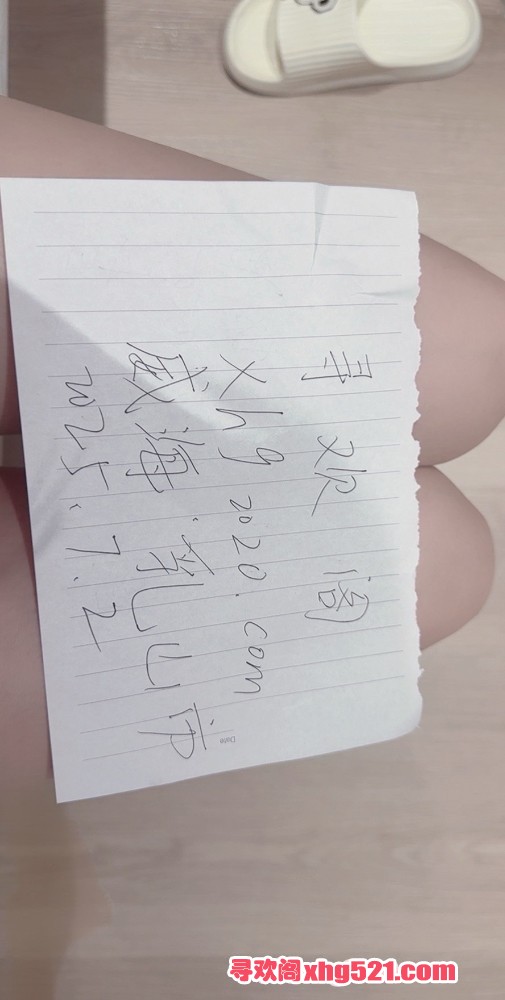 寻欢阁
xhg2020.com
威海:乳山市
2025.7.2
Date
寻欢阁xhg521.com